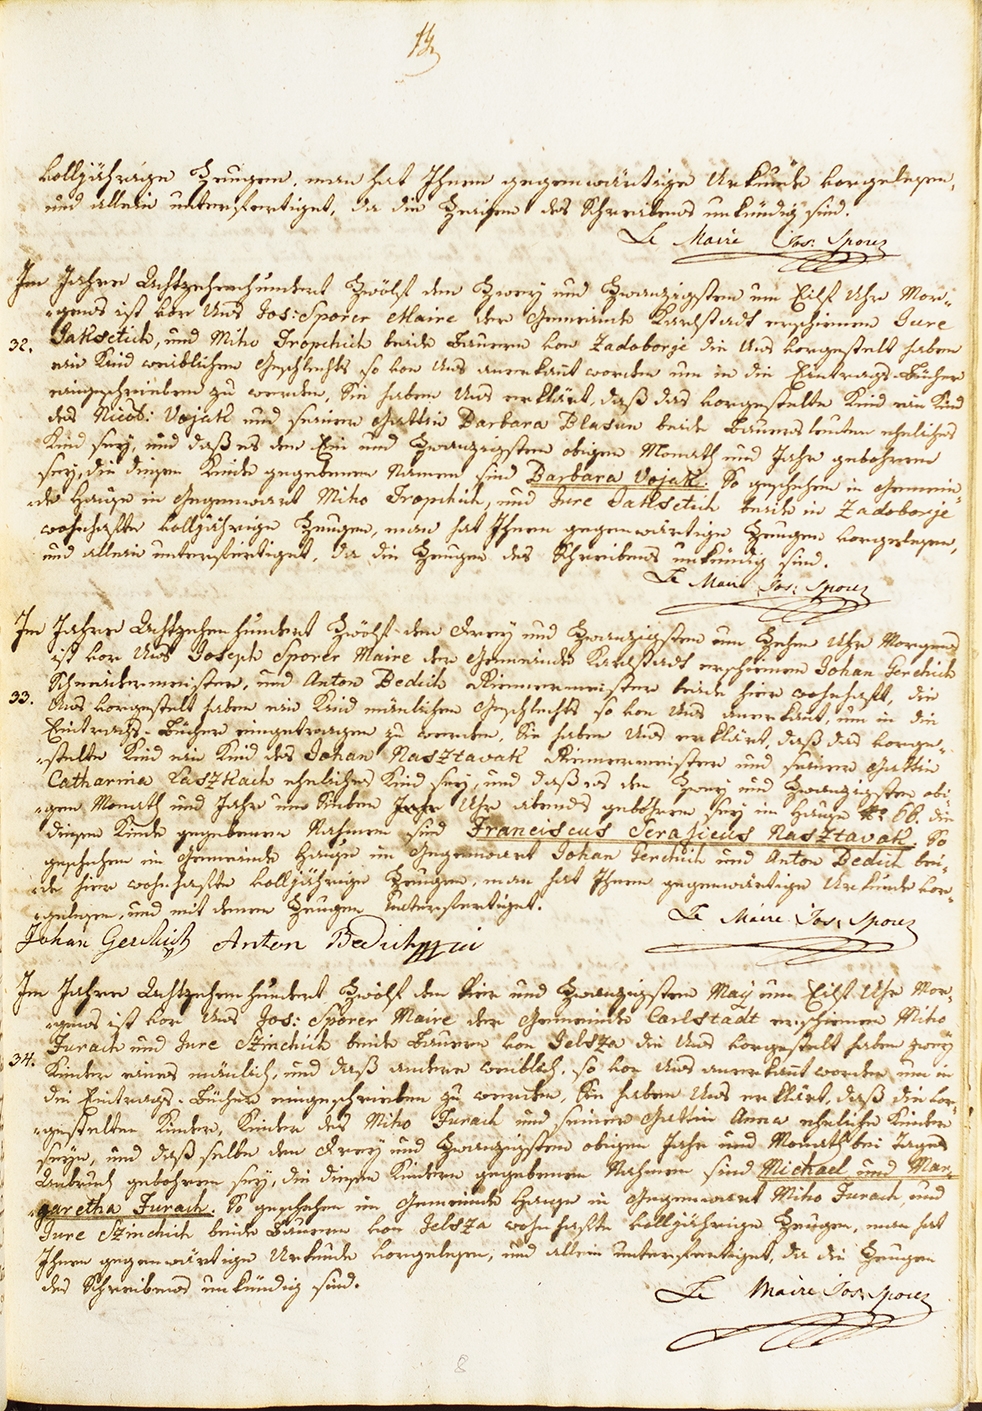 14
volljährige Zeugen, man hat Ihnen gegenwärtige Urkunde vorgelesen,
und allein unterfertiget, da die Zeugen des Schreibens unkündig sind.
Le Maire Jos: Sporer
Im Jahre Achtzehenhundert Zwölf den Zwey und Zwanzigsten um Eilf Uhr Mor-
-gens ist vor Uns Jos: Sporer Maire der Gemeinde Karlstadt erschienen Jure
32. Jaksetich, und Miho Tropchich beide Bauern von Zadoborje die Uns vorgestelt haben
ein Kind weiblichen Geschlechts so von Uns anerkant worden um in die Eintrags-Bücher
eingeschrieben zu werden, Sie haben Uns erklärt, daß das vorgestelte Kind ein Kind
des Nicol: Vojak und seiner Gattin Barbara Blasun beide Bauersleuten eheliches
Kind sey, und daß es den Ein und Zwanzigsten obigen Monath und Jahr gebohren
sey, die diesen Kinde gegebenen Namen sind Barbara Vojak. So geschehen in Gemein-
-de Hause in Gegenwart Miho Tropchich, und Jure Jaksetich beide in Zadoborje
wohnhafte volljährige Zeugen, man hat Ihnen gegenwärtige Zeugen vorgelesen,
und allein unterfertiget, da die Zeugen des Schreibens unkündig sind.
Le Maire Jos: Sporer
Im Jahre Achtzehenhundert Zwölf den Drey und Zwanzigsten um Zehen Uhr Morgens
ist vor Uns Joseph Sporer Maire der Gemeinde Karlstadt erschienen Johan Gerchich
33. Schneidermeister, und Anton Bedich Riemermeister beide hier wohnhaft, die
Uns vorgestelt haben ein Kind mänlichen Geschlechts so von Uns anerkant, um in die
Eintrags-Bücher eingetragen zu werden, Sie haben Uns erklärt, daß das vorge-
-stelte Kind ein Kind des Johan Nasztavak Riemermeister und seiner Gattin
Catharina Laszkach eheliches Kind sey, und daß es den Zwey und Zwanzigsten obi-
-gen Monath und Jahr um Sieben Uhr abends gebohren sey im Hause No 66. die
diesen Kinde gegebenen Nahmen sind Franciscus Seraficus Nasztavak. So
geschehen im Gemeinde Hause im Gegenwart Johan Gerchich und Anton Bedich bei-
-de hier wohnhafte volljährige Zeugen, man hat Ihnen gegenwärtige Urkunde vor-
-gelesen, und mit denen Zeugen unterfertiget.
Le Maire Jos: Sporer
Johan Gerchich Anton Bedich
Im Jahre Achtzehenhundert Zwölf den Vier und Zwanzigsten May um Eilf Uhr Mor-
-gens ist vor Uns Jos: Sporer Maire der Gemeinde Carlstadt erschienen Miho
34. Furach und Jure Szinchich beide Bauern von Jelsza die Uns vorgestelt haben zwey
Kinder eines mänlich, und daß andere weiblich, so von Uns anerkant worden um in
die Eintrags-Bücher eingeschrieben zu werden, Sie haben Uns erklärt, daß die vor-
-gestelten Kinder, Kinder des Miho Furach und seiner Gattin Anna eheliche Kinder
seyn, und daß selbe den Drey und Zwanzigsten obigen Jahr und Monath bei Tages
Anbruch gebohren sey, die diesen Kindern gegebenen Nahmen sind Michael und Mar-
-garetha Furach. So geschehen im Gemeinde Hause in Gegenwart Miho Furach und
Jure Szinchich beide Bauern von Jelsza wohnhafte volljährige Zeugen, man hat
Ihnen gegenwärtige Urkunde vorgelesen, und allein unterfertiget, da die Zeugen
des Schreibens unkündig sind.
Le Maire Jos: Sporer
8